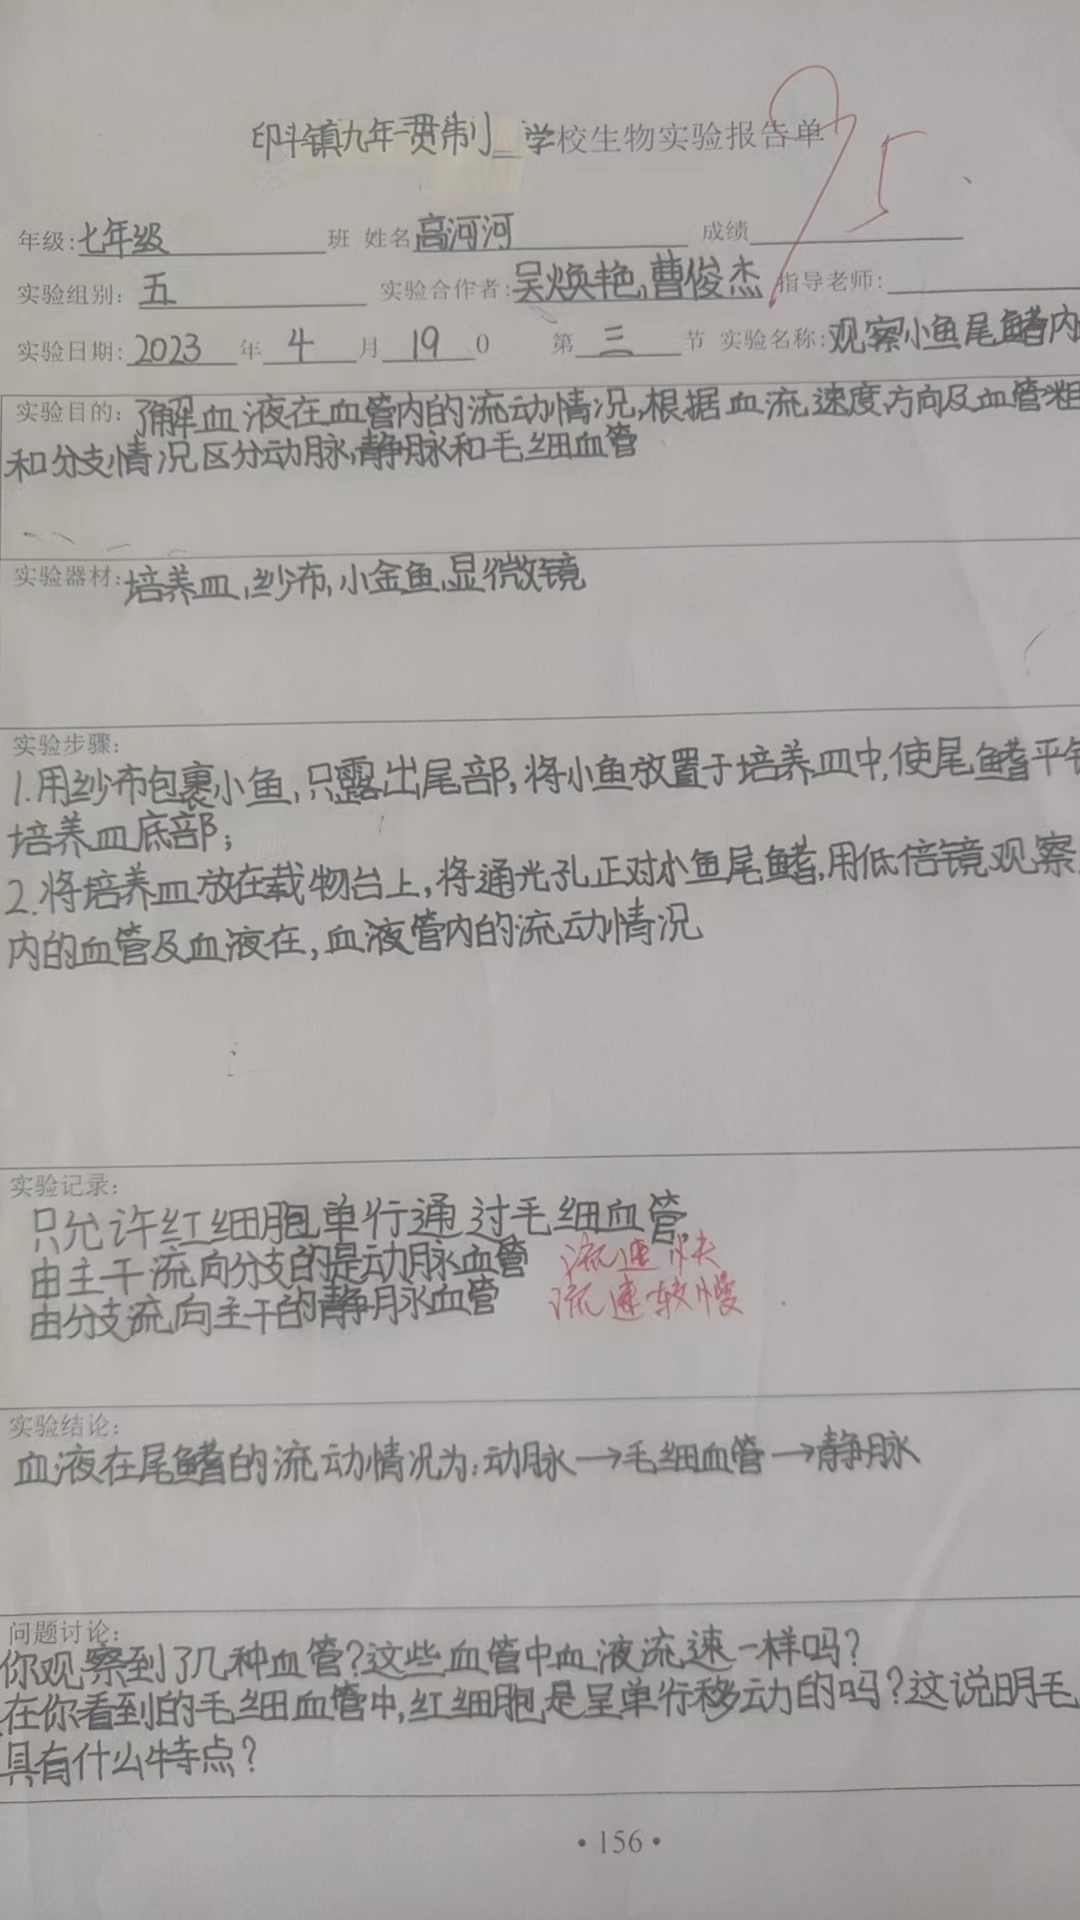 印斗镇九年一贯制学校生物实验报告单
95
年级:七年级 班 姓名高河河 成绩
实验组别:五 实验合作者:吴焕艳,曹俊杰 指导老师:
实验日期:2023年4月190 第三节 实验名称:观察小鱼尾鳍内
实验目的:了解血液在血管内的流动情况,根据血流速度方向及血管粗
和分支情况区分动脉,静脉和毛细血管
实验器材:培养皿,纱布,小金鱼,显微镜
实验步骤:
1.用纱布包裹小鱼,只露出尾部,将小鱼放置于培养皿中,使尾鳍平
培养皿底部;
2.将培养皿放在载物台上,将通光孔正对小鱼尾鳍,用低倍镜观察
内的血管及血液在,血液管内的流动情况
实验记录:
只允许红细胞单行通过毛细血管
由主干流向分支的是动脉血管 流速快
由分支流向主干的静脉血管 流速较慢.
实验结论:
血液在尾鳍的流动情况为:动脉→毛细血管→静脉
问题讨论:
你观察到了几种血管?这些血管中血液流速一样吗?
在你看到的毛细血管中,红细胞是呈单行移动的吗?这说明毛
具有什么特点?
•156•